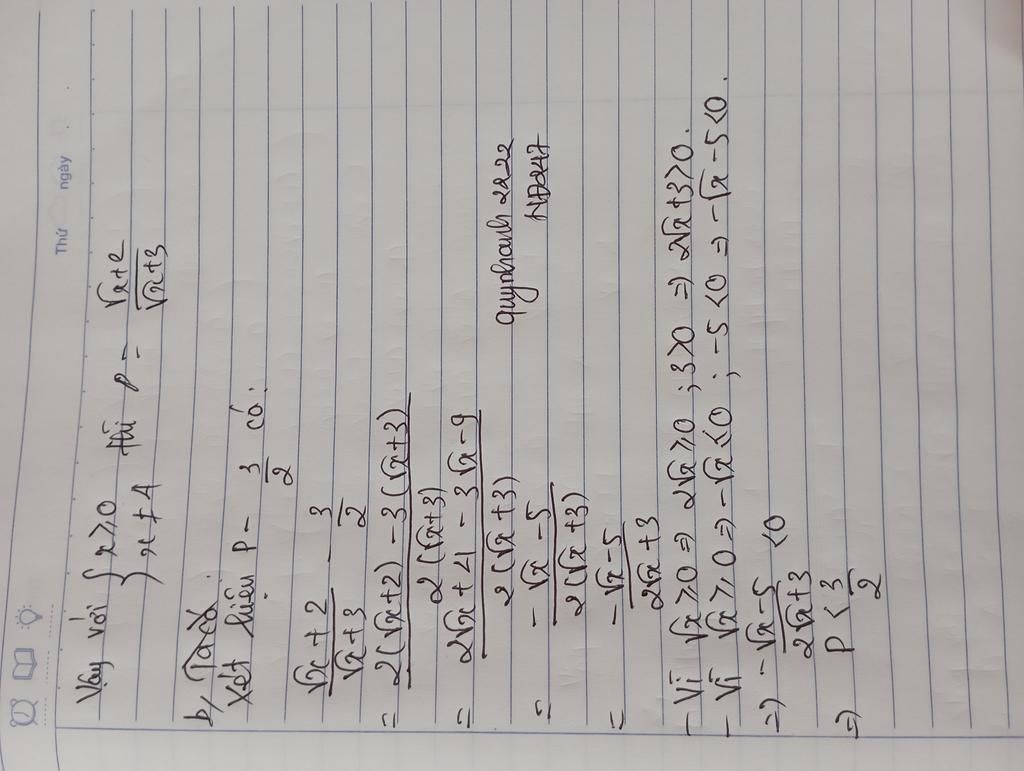 Thứ ngày
Vậy với { x ≥ 0 ; x ≠ 4 thì P = (√x+2)/(√x+3)
b, Ta có:
Xét hiệu P - 3/2 có:
(√x+2)/(√x+3) - 3/2
= (2(√x+2) - 3(√x+3))/(2(√x+3))
= (2√x+4 - 3√x-9)/(2(√x+3))
= (-√x-5)/(2(√x+3))
= (-√x-5)/(2√x+3)
quynhanh2222
ND247
- Vì √x ≥ 0 ⇒ 2√x ≥ 0 ; 3>0 ⇒ 2√x+3>0.
- Vì √x ≥ 0 ⇒ -√x ≤ 0 ; -5<0 ⇒ -√x-5<0.
⇒ (-√x-5)/(2√x+3) <0
⇒ P < 3/2